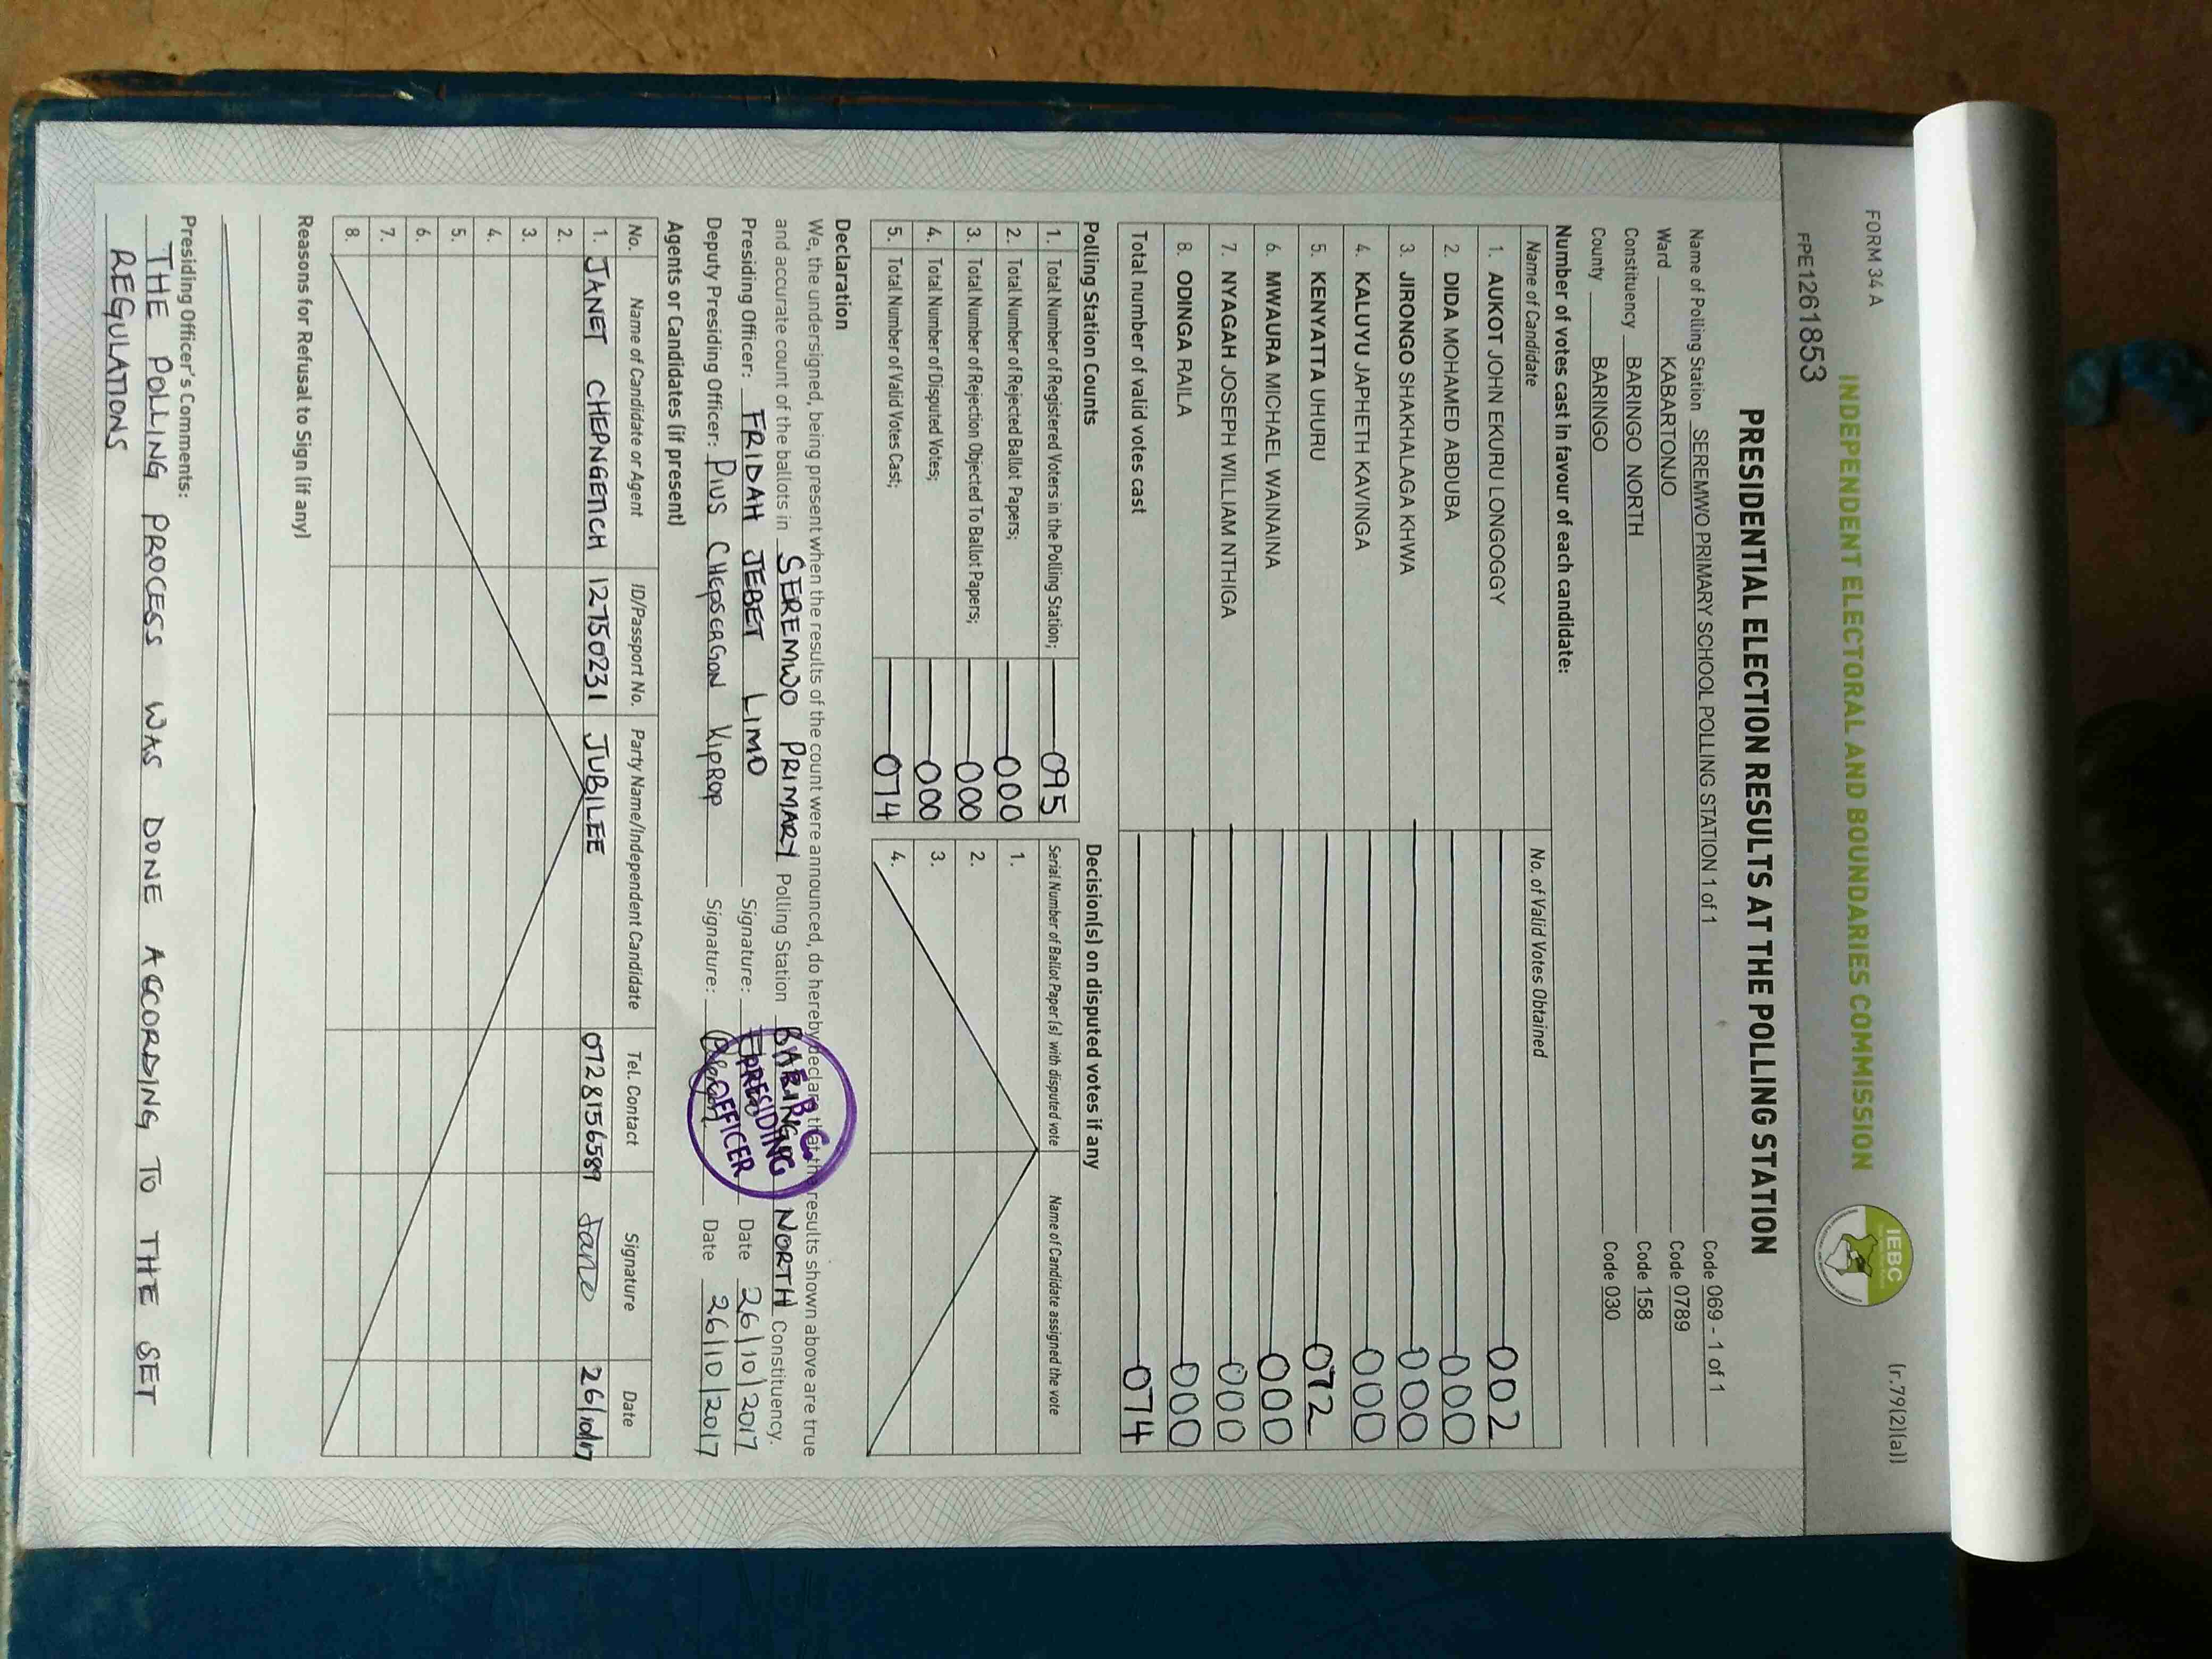 FORM 34 A
(r.79(2)(a))
INDEPENDENT ELECTORAL AND BOUNDARIES COMMISSION
IEBC
FPE1261853
PRESIDENTIAL ELECTION RESULTS AT THE POLLING STATION
Name of Polling Station SEREMWO PRIMARY SCHOOL POLLING STATION 1 of 1 Code 069 - 1 of 1
Ward KABARTONJO Code 0789
Constituency BARINGO NORTH Code 158
County BARINGO Code 030
Number of votes cast in favour of each candidate:
Name of Candidate No. of Valid Votes Obtained
1. AUKOT JOHN EKURU LONGOGGY 002
2. DIDA MOHAMED ABDUBA 000
3. JIRONGO SHAKHALAGA KHWA 000
4. KALUYU JAPHETH KAVINGA 000
5. KENYATTA UHURU 072
6. MWAURA MICHAEL WAINAINA 000
7. NYAGAH JOSEPH WILLIAM NTHIGA 000
8. ODINGA RAILA 000
Total number of valid votes cast 074
Polling Station Counts
1. Total Number of Registered Voters in the Polling Station; 095
2. Total Number of Rejected Ballot Papers; 000
3. Total Number of Rejection Objected To Ballot Papers; 000
4. Total Number of Disputed Votes; 000
5. Total Number of Valid Votes Cast; 074
Decision(s) on disputed votes if any
Serial Number of Ballot Paper (s) with disputed vote Name of Candidate assigned the vote
1.
2.
3.
4.
Declaration
We, the undersigned, being present when the results of the count were announced, do hereby declare that the results shown above are true
and accurate count of the ballots in SEREMWO PRIMARY Polling Station BARINGO NORTH Constituency.
Presiding Officer: FRIDAH JEBET LIMO Signature: Date 26/10/2017
Deputy Presiding Officer: PIUS CHEPSERGON KIPROP Signature: Date 26/10/2017
PRESIDING
OFFICER
Agents or Candidates (if present)
No. Name of Candidate or Agent ID/Passport No. Party Name/Independent Candidate Tel. Contact Signature Date
1. JANET CHEPNGETICH 12750231 JUBILEE 0728156589 Jane 26/10/17
2.
3.
4.
5.
6.
7.
8.
Reasons for Refusal to Sign (if any)
Presiding Officer's Comments:
THE POLLING PROCESS WAS DONE ACCORDING TO THE SET
REGULATIONS